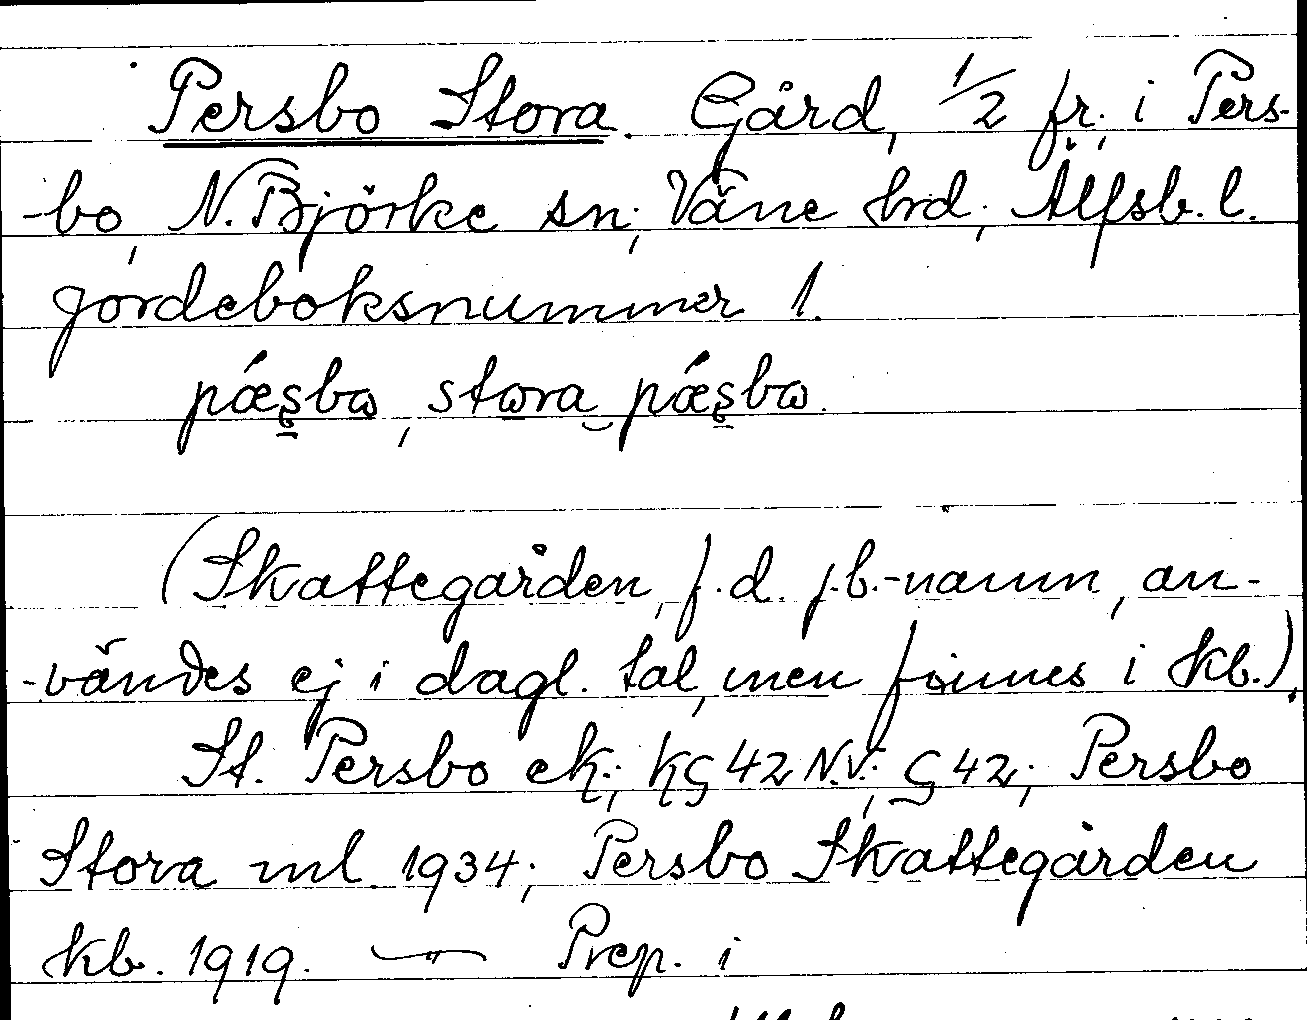 Persbo Stora. Gård, 1/2 fr., i Pers-
-bo, N. Björke sn., Väne hrd., Älfsb. l.
jordeboksnummer 1.
pǽs̠bɷ, stɷra‿pǽs̠bɷ.
(Skattegården, f.d. j.b.-namn, an-
-vändes ej i dagl. tal, men finnes i kb.).
St. Persbo ek.; kg 42 N.V.; G 42; Persbo
Stora ml 1934; Persbo Skattegården
kb. 1919. —〃— Prep. i